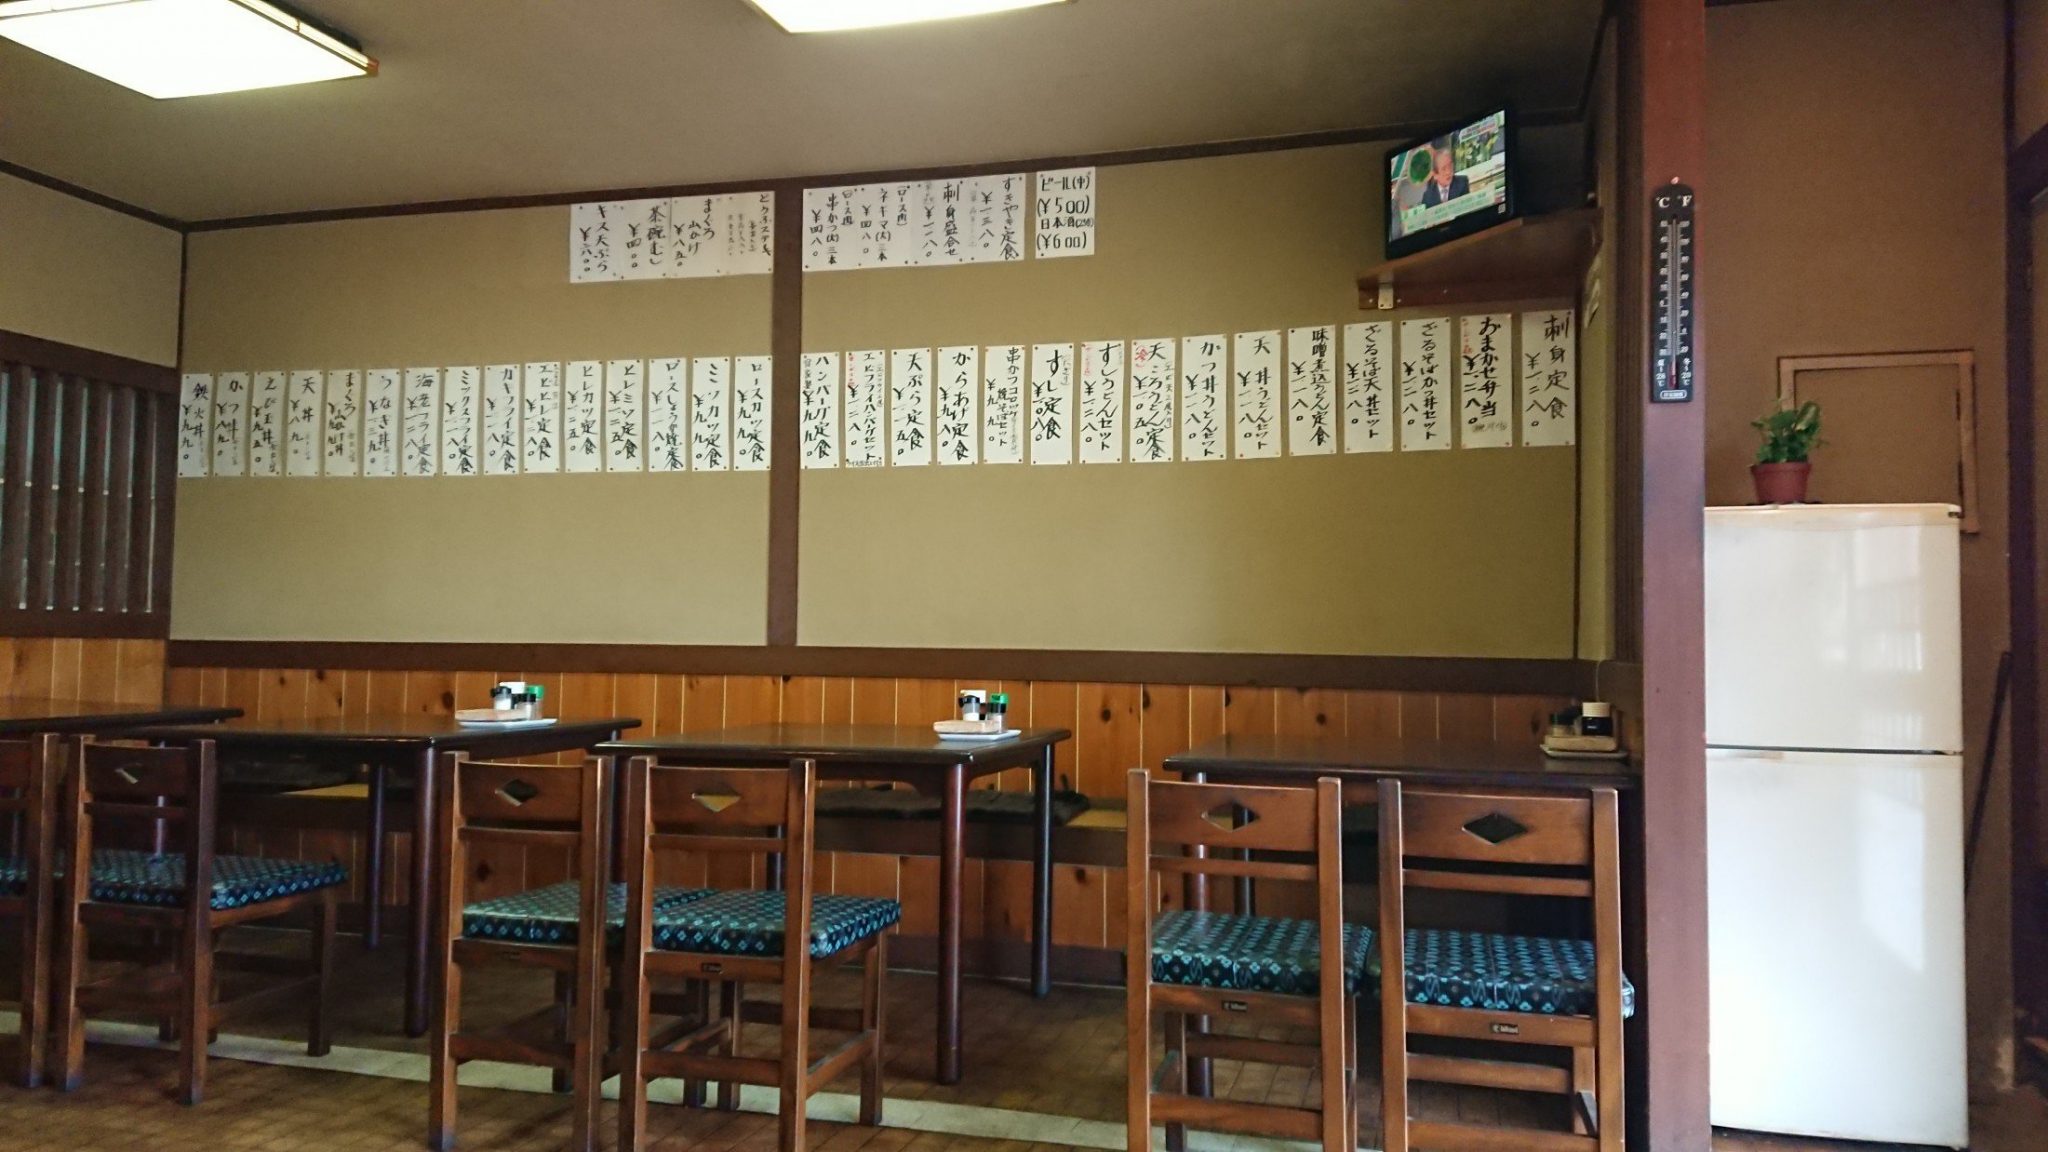 ビール(中)
(¥500)
日本酒(250)
(¥600)
すきやき定食
¥一三八〇
刺身盛合せ
¥一一八〇
(ロース肉)
ネギマ(大)二本
¥四八〇
(ロース肉)
串かつ(大)三本
¥四八〇
とうふステーキ
まぐろ
山かけ
¥八五〇
茶碗むし
¥四〇〇
キス天ぷら
刺身定食
¥一二八〇
おまかせ弁当
¥一二八〇
ざるそばかつ丼セット
¥一二八〇
ざるそば天丼セット
¥一二八〇
味噌煮込うどん定食
¥一一八〇
天丼うどんセット
¥一一八〇
かつ丼うどんセット
¥一一八〇
天ころうどん定食
¥一一五〇
すしうどんセット
¥一二八〇
すし定食
¥一〇八〇
串かつコロッケ
焼そばセット
¥九九〇
からあげ定食
¥九八〇
天ぷら定食
¥一一五〇
エビフライハンバーグセット
¥一二八〇
ハンバーグ定食
¥九九〇
ロースカツ定食
¥九九〇
ミソカツ定食
¥九九〇
ロースしょうが焼定食
¥一一八〇
ヒレミソ定食
¥一二五〇
ヒレカツ定食
¥一二五〇
エビヒレ定食
¥一二八〇
カキフライ定食
¥一一八〇
ミックスフライ定食
¥一二八〇
海老フライ定食
¥一二八〇
うなぎ丼
まぐろ
山かけ丼
天丼
¥八九〇
えび玉丼
¥九五〇
かつ丼
¥八九〇
鉄火丼
¥九九〇
℃
℉